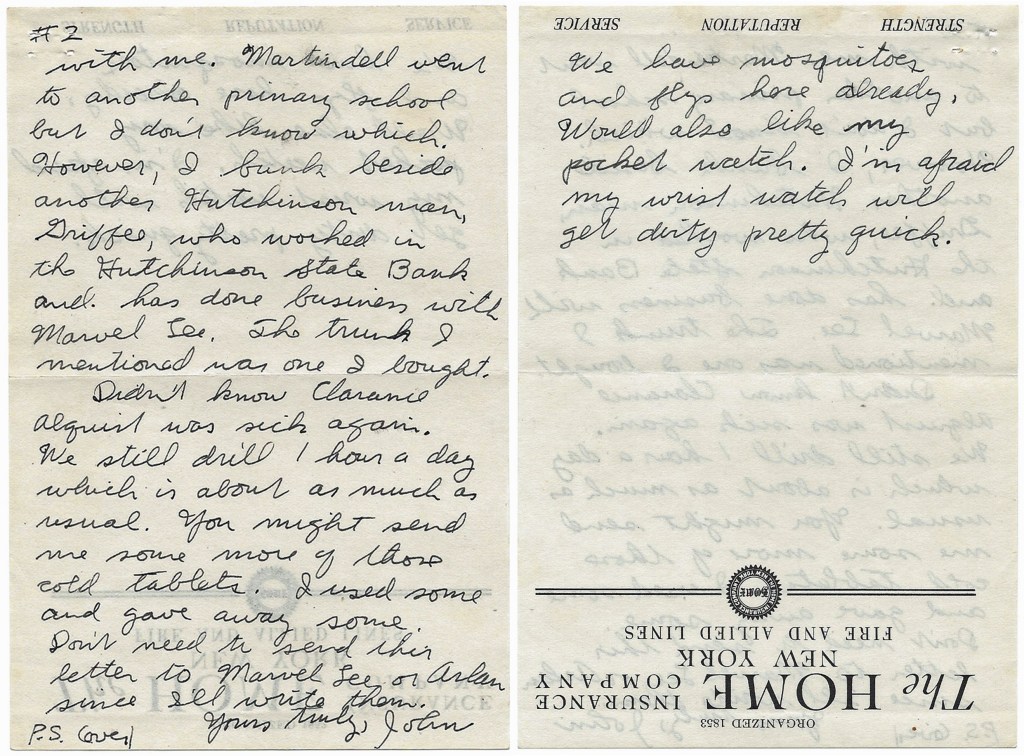 #2
with me. Martindell went
to another primary school
but I don't know which.
However, I bunk beside
another Hutchinson man,
Griffee, who worked in
the Hutchinson State Bank
and. has done business with
Marvel Lee. The trunk I
mentioned was one I bought.
Didn't know Clarance
Alquist was sick again.
We still drill 1 hour a day
which is about as much as
usual. You might send
me some more of those
cold tablets. I used some
and gave away some.
Don't need to send this
letter to Marvel Lee or Arlan
since I'll write them.
Yours truly, John
P.S. (over)
We have mosquitoes
and flys here already.
Would also like my
pocket watch. I'm afraid
my wrist watch will
get dirty pretty quick.
STRENGTH REPUTATION SERVICE
ORGANIZED 1853
The HOME INSURANCE COMPANY
NEW YORK
FIRE AND ALLIED LINES
HOME